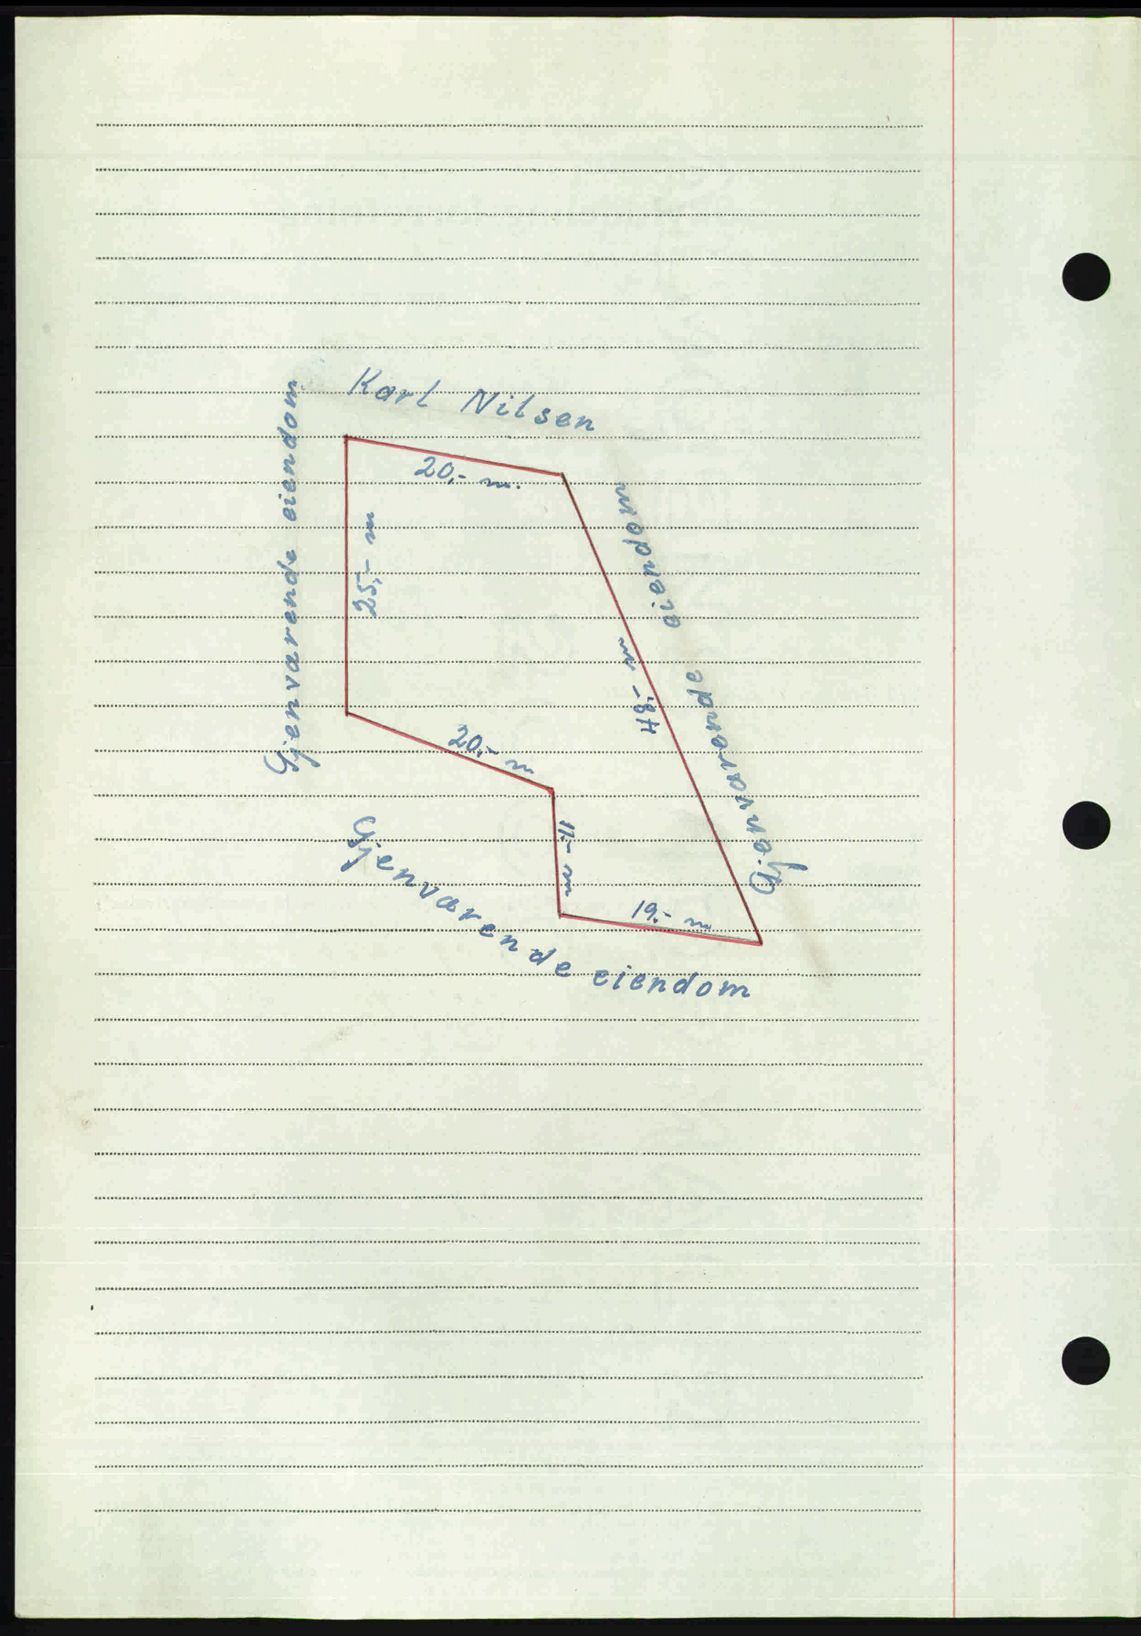 Karl Nilsen
Gjenvarende eiendom
20,- m.
25,- m
Gjenvarende eiendom
48,- m
20,- m
11,- m
19,- m
Gjenvarende eiendom